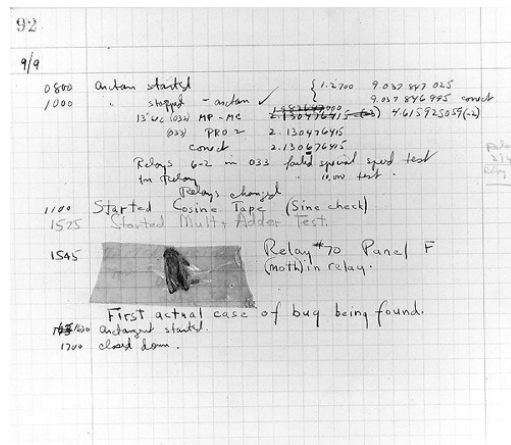 92
9/9
0800 antan started { 1.2700 9.037 847 025
1000 " stopped - antan ✓ 9.037 846 995 correct
13"uc (032) MP - MC 2.130476415 (-3) 4.615925059(-2)
(033) PRO 2 2.130476415
correct 2.130676415
Relays 6-2 in 033 failed special speed test
in Relay " 10,000 test.
Relays changed
1100 Started Cosine Tape (Sine check)
1525 Started Mult + Adder Test.
1545 Relay #70 Panel F
(moth) in relay.
First actual case of bug being found.
1630 antangent started.
1700 closed down.